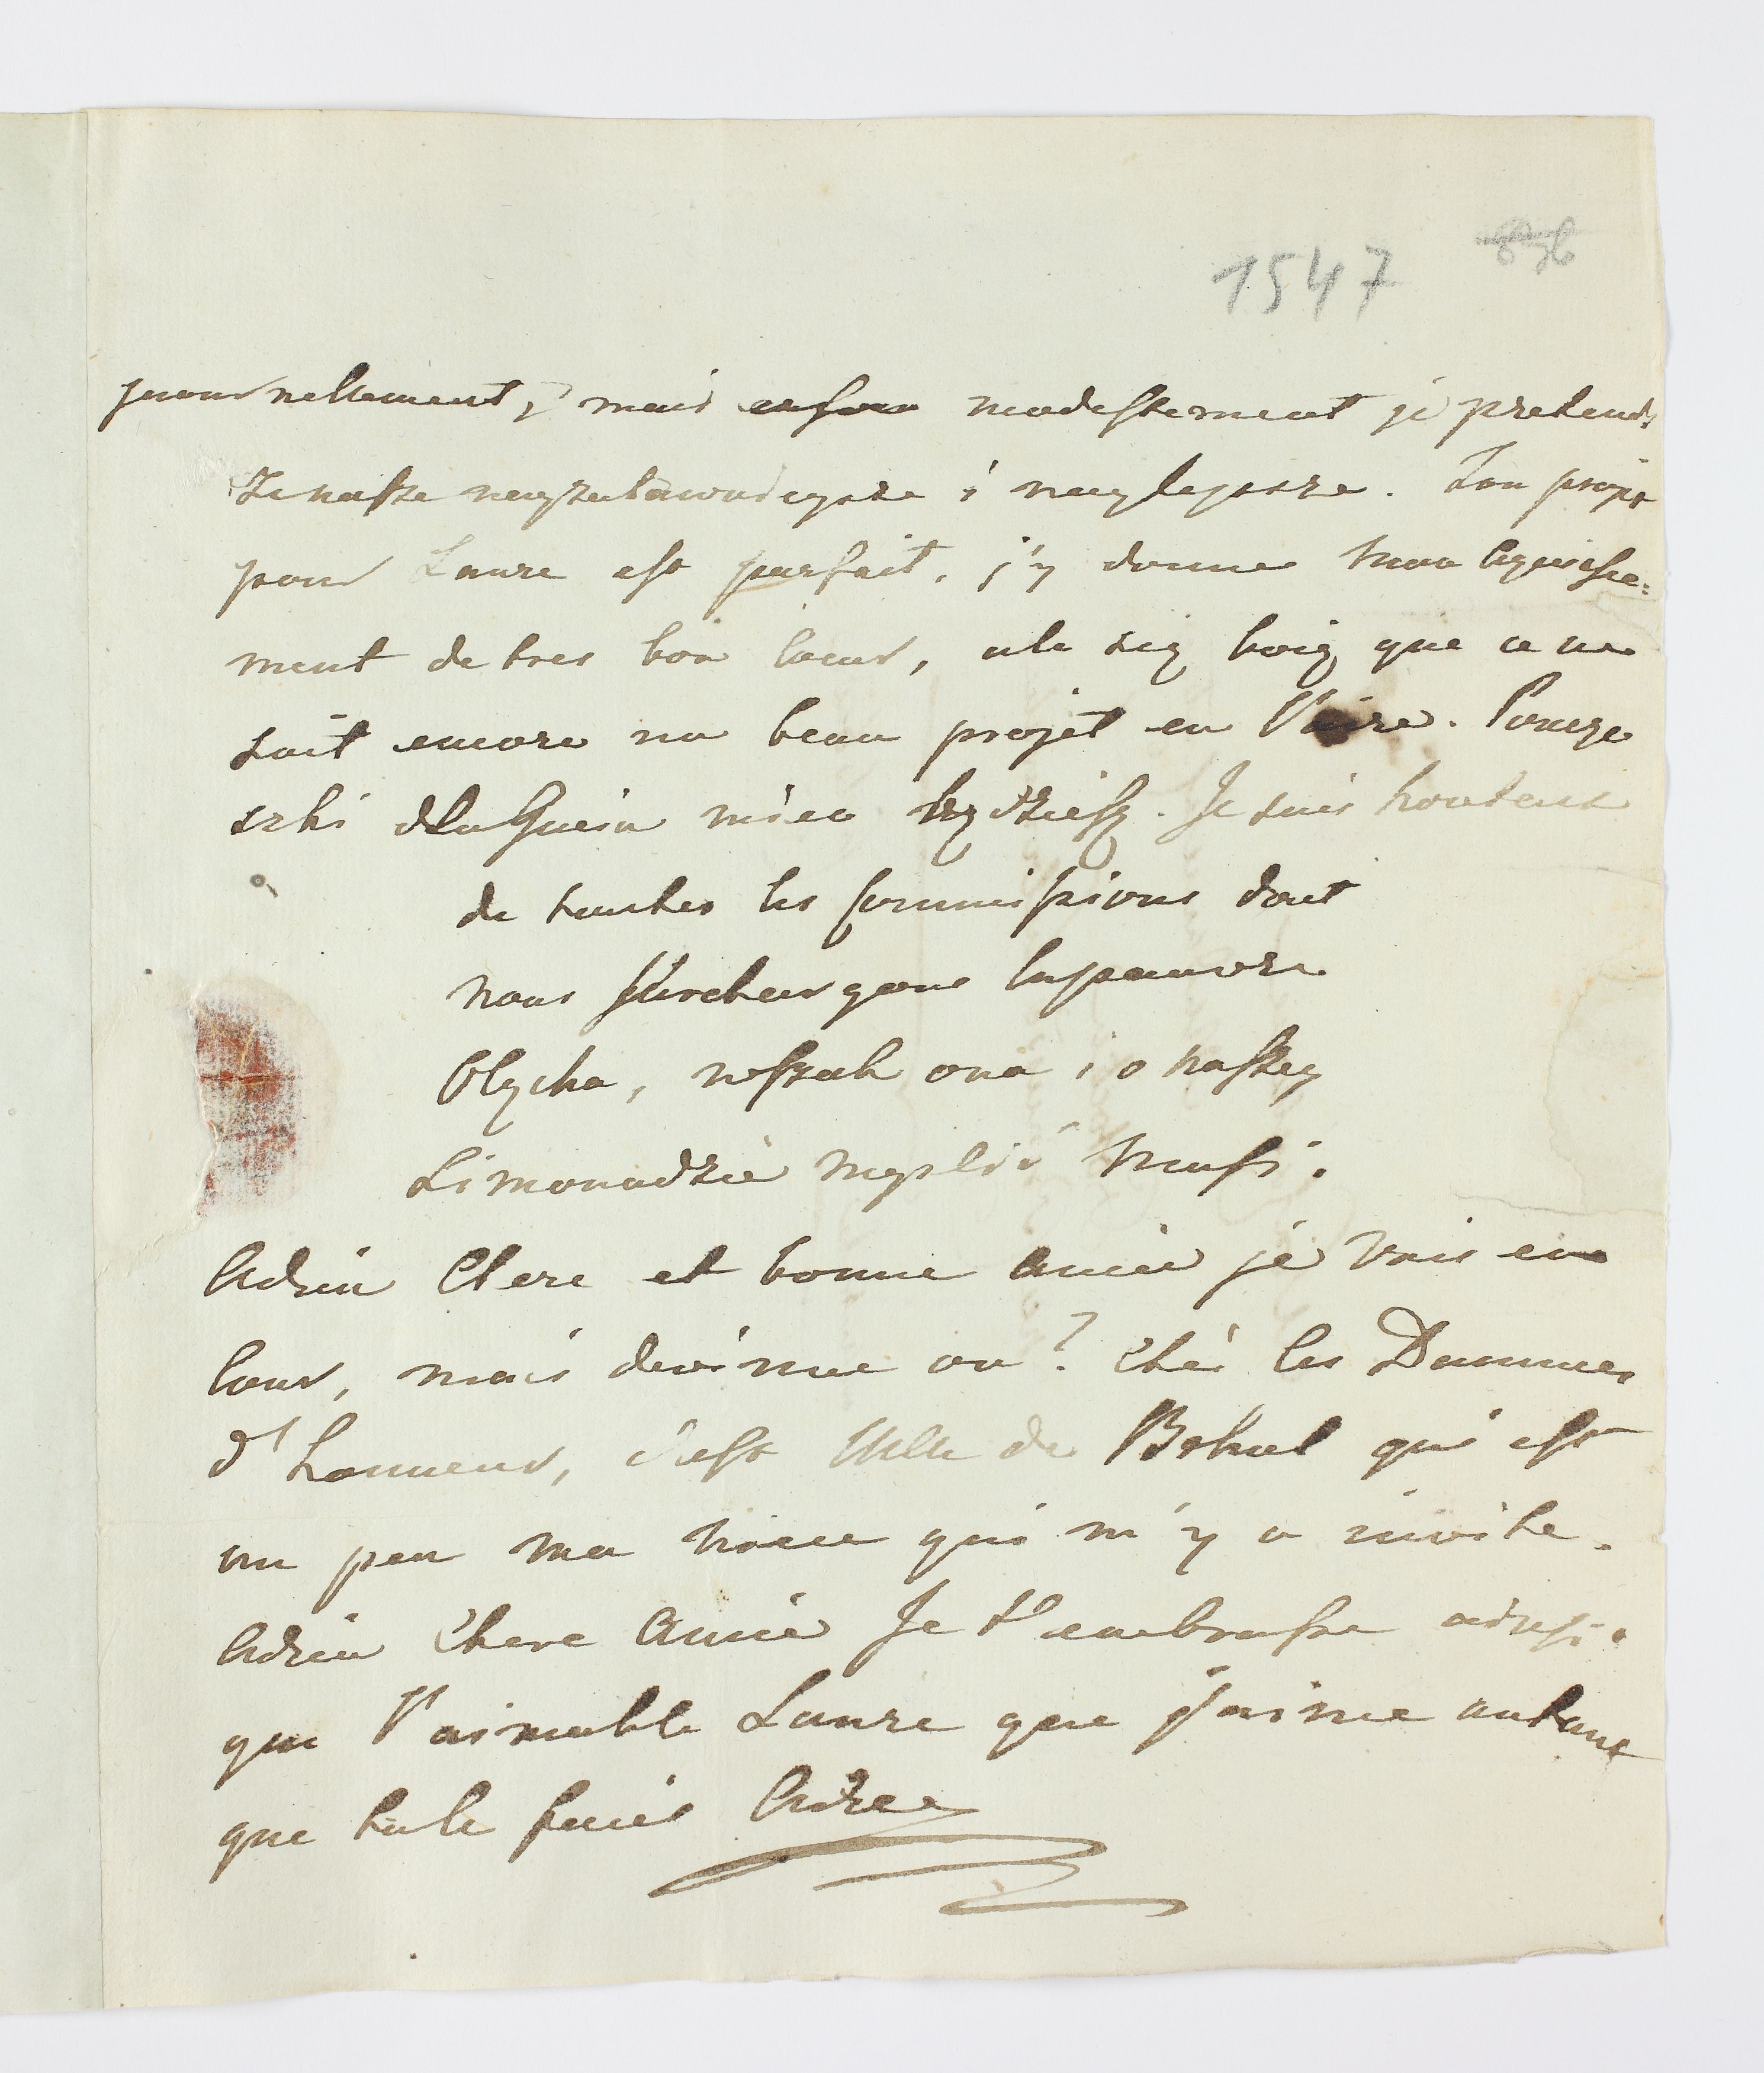 1547
journellement, mais modestement je pretends
Ze nasze nayzabawnieysze i naylepsze. Ton projet
pour Laure est parfait, j'y donne mon aquiesce=
ment de tres bon Coeur, ale się boię que ce ne
soit encore un beau projet en l'aire. Poncze
szki dla Gucia mieć będziesz. Je suis honteux
de toutes les Commissions dont
nous surchargeons la pauvre
Olycka, wszak ona i o naszey
Limonadzie mysleć musi.
Adieu Chere et bonne Amie je vais en
Cour, mais devinne ou? Chés les Dammes
d'honneur, c'est Mlle de qui est
un peu ma niece qui m'y a invite.
Adieu Chere Amie Je t'embrasse ainsi
que l'aimable Laure que j'aime autant
que tu le fais Adieu